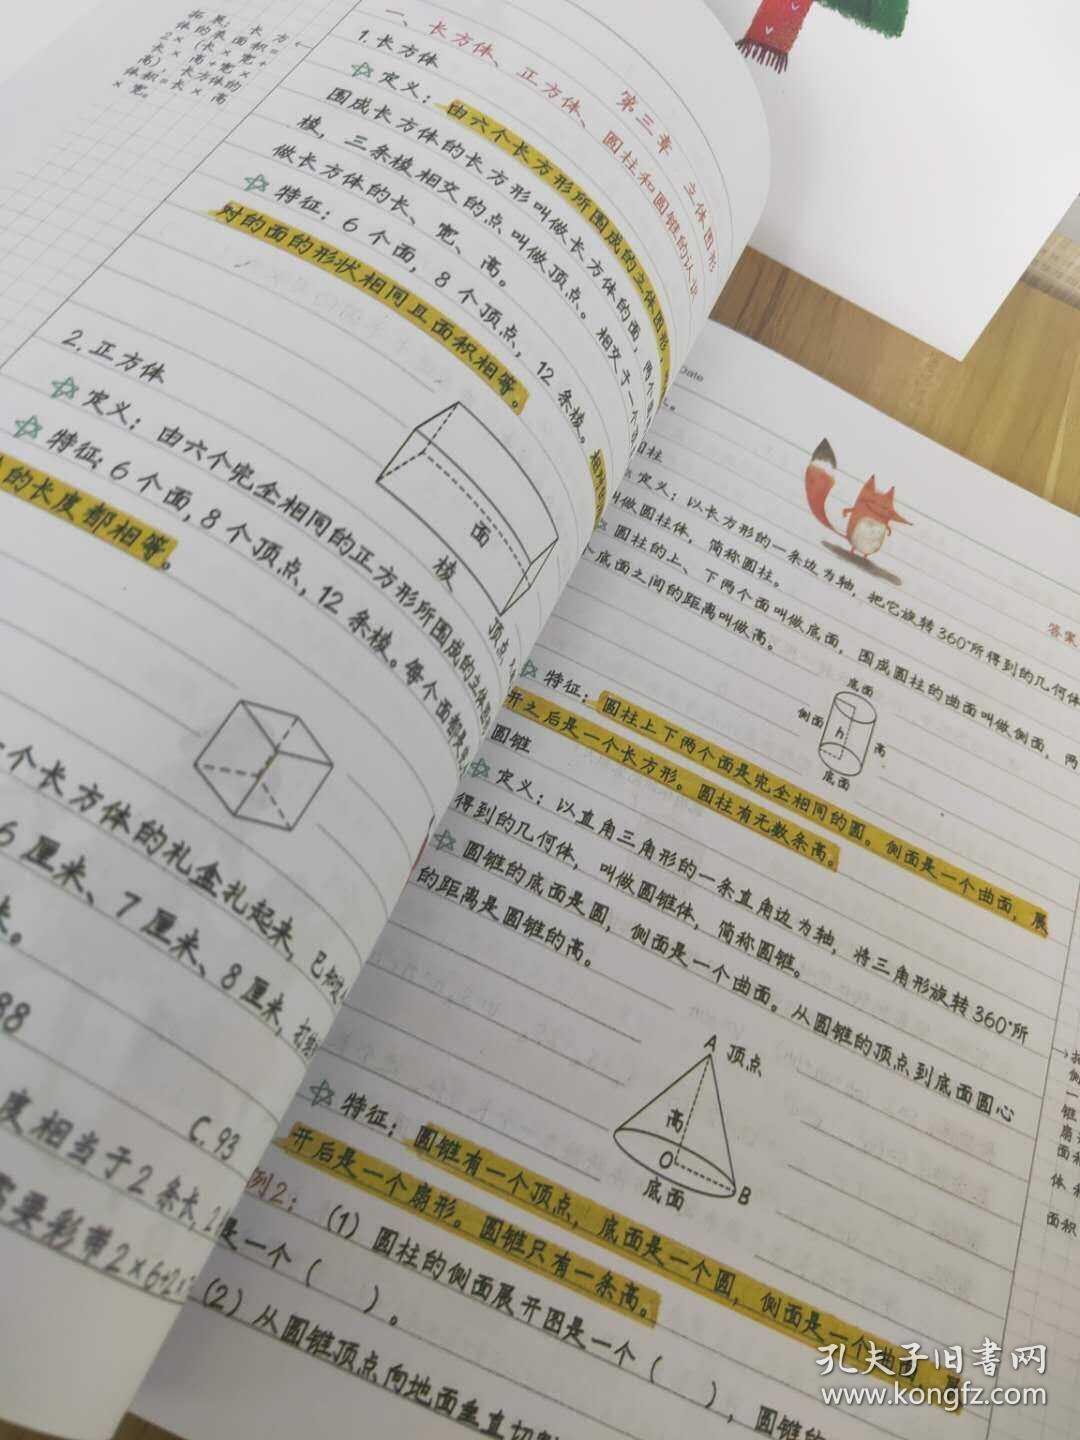 第三章 立体图形
一、长方体、正方体、圆柱和圆锥的认识
1.长方体
☆定义：由六个长方形所围成的立体图形，
围成长方体的长方形叫做长方体的面，两个
棱，三条棱相交的点叫做顶点。相交于一个
做长方体的长、宽、高。
☆特征：6个面，8个顶点，12条棱。相
对的面的形状相同且面积相等。
面
棱
顶点
2.正方体
☆定义：由六个完全相同的正方形所围成的立体
☆特征：6个面，8个顶点，12条棱。每个面都
的长度都相等。
拓展：长方
体的表面积=
2×（长×宽+
长×高+宽×
高），长方体的
体积=长×高
×宽。
一个长方体的礼盒扎起来，已知
6厘米、7厘米、8厘米，打结
米。
88
C.93
度相当于2条长，2
需要彩带2×6+2×
Date
圆柱
☆定义：以长方形的一条边为轴，把它旋转360°所得到的几何体
叫做圆柱体，简称圆柱。
☆圆柱的上、下两个面叫做底面，围成圆柱的曲面叫做侧面，两
个底面之间的距离叫做高。
答案
底面
侧面
h
高
底面
☆特征：圆柱上下两个面是完全相同的圆。侧面是一个曲面，展
开之后是一个长方形。圆柱有无数条高。
圆锥
☆定义：以直角三角形的一条直角边为轴，将三角形旋转360°所
得到的几何体，叫做圆锥体，简称圆锥。
☆圆锥的底面是圆，侧面是一个曲面。从圆锥的顶点到底面圆心
的距离是圆锥的高。
A 顶点
高
O
底面
B
☆特征：圆锥有一个顶点，底面是一个圆，侧面是一个曲面，展
开后是一个扇形。圆锥只有一条高。
例2：（1）圆柱的侧面展开图是一个（ ），圆锥的
是一个（ ）。
（2）从圆锥顶点向地面垂直切割
侧
一
锥
扇
面积
体积
面积
孔夫子旧书网
www.kongfz.com